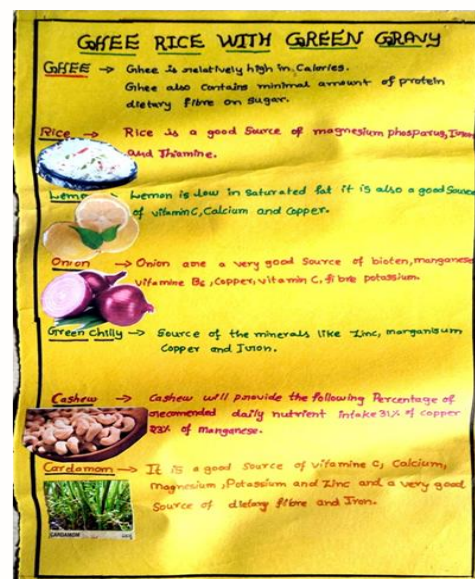 GHEE RICE WITH GREEN GRAVY
GHEE → Ghee is relatively high in Calories.
Ghee also contains minimal amount of protein
dietary fibre or sugar.
Rice → Rice is a good Source of magnesium phosparus, Iron
and Thiamine.
Lemo Lemon is low in Saturated fat it is also a good Source
of vitamin C, Calcium and Copper.
Onion → Onion are a very good Source of bioten, manganese
vitamine B6, Copper, vitamin C, fibre potassium.
Green Chilly → Source of the minerals like Zinc, marganisum
Copper and Iron.
Cashew → Cashew will provide the following Percentage of
recomended daily nutrient intake 31% of copper
23% of manganese.
Cardamom → It is a good Source of vitamine C, Calcium,
Magnesium, Potassium and Zinc and a very good
Source of dietary fibre and Iron.
CARDAMOM